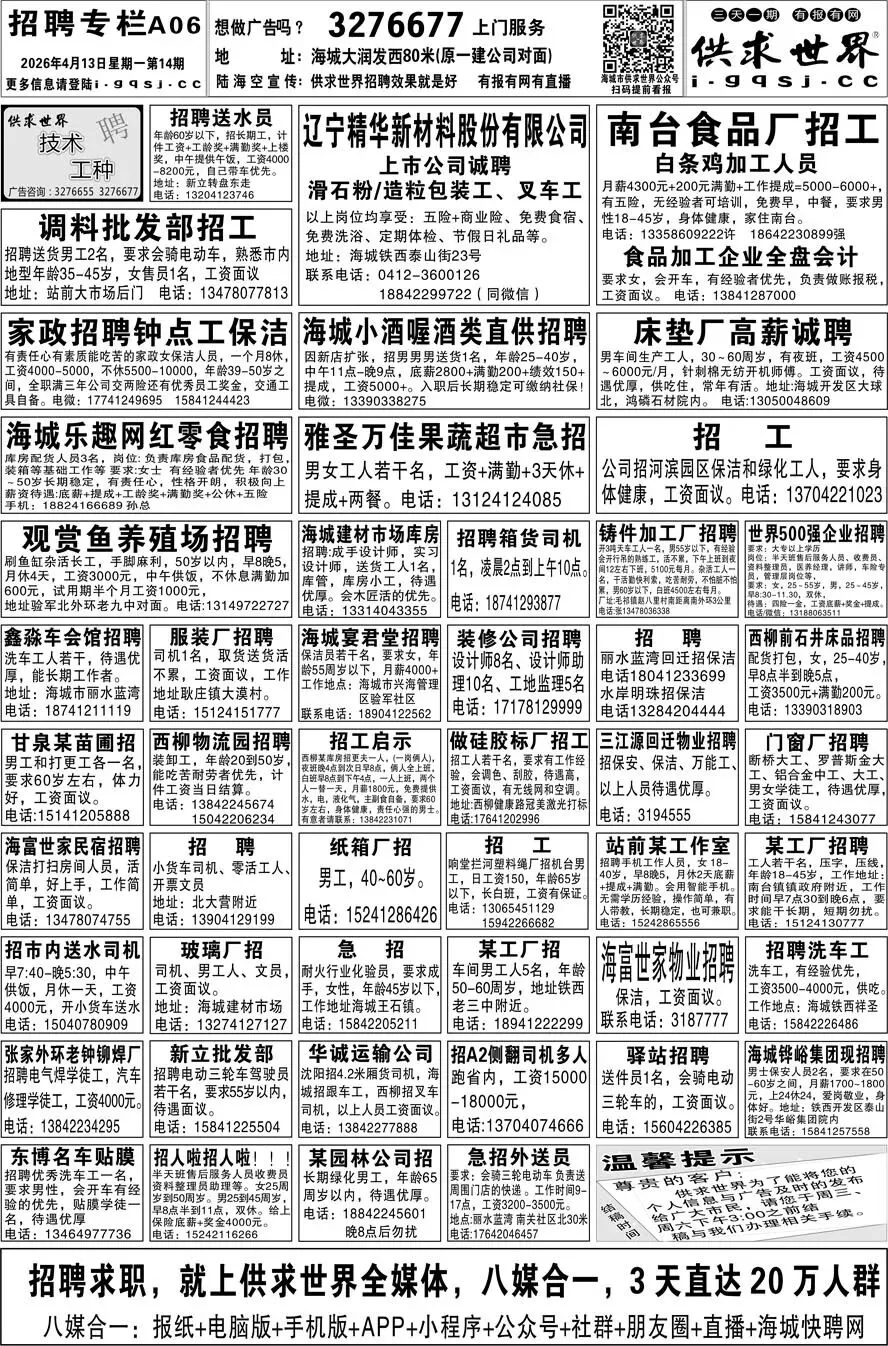 招聘专栏A06
2026年4月13日星期一第14期
更多信息请登陆i-gqsj.cc
想做广告吗？ 3276677 上门服务
地　　址：海城大润发西80米(原一建公司对面)
陆海空宣传：供求世界招聘效果就是好　有报有网有直播
海城市供求世界公众号
扫码提前看报
三天一期 有报有网
供求世界®
i-gqsj.cc
供求世界
技术
工种
聘
广告咨询：3276655 3276677
招聘送水员
年龄60岁以下，招长期工，计
件工资+工龄奖+满勤奖+上楼
奖，中午提供午饭，工资4000
-8200元，自己带车优先。
地址：新立转盘东走
电话：13204123746
辽宁精华新材料股份有限公司
上市公司诚聘
滑石粉/造粒包装工、叉车工
以上岗位均享受：五险+商业险、免费食宿、
免费洗浴、定期体检、节假日礼品等。
地址：海城铁西泰山街23号
联系电话：0412-3600126
18842299722（同微信）
南台食品厂招工
白条鸡加工人员
月薪4300元+200元满勤+工作提成=5000-6000+，
有五险，无经验者可培训，免费早，中餐，要求男
性18-45岁，身体健康，家住南台。
电话：13358609222许　18642230899强
食品加工企业全盘会计
要求女，会开车，有经验者优先，负责做账报税，
工资面议。 电话：13841287000
调料批发部招工
招聘送货男工2名，要求会骑电动车，熟悉市内
地型年龄35-45岁，女售员1名，工资面议
地址：站前大市场后门　电话：13478077813
家政招聘钟点工保洁
有责任心有素质能吃苦的家政女保洁人员，一个月8休，
工资4000-5000，不休5500-10000，年龄39-50岁之
间，全职满三年公司交两险还有优秀员工奖金，交通工
具自备。电微：17741249695　15841244423
海城小酒喔酒类直供招聘
因新店扩张，招男男男送货1名，年龄25-40岁，
中午11点-晚9点，底薪2800+满勤200+绩效150+
提成，工资5000+。入职后长期稳定可缴纳社保！
电微：13390338275
床垫厂高薪诚聘
男车间生产工人，30～60周岁，有夜班，工资4500
～6000元/月，针刺棉无纺开机师傅。工资面议，待
遇优厚，供吃住，常年有活。地址:海城开发区大球
北，鸿磷石材院内。 电话:13050048609
海城乐趣网红零食招聘
库房配货人员3名，岗位:负责库房食品配货，打包，
装箱等基础工作等 要求:女士 有经验者优先 年龄30
～50岁长期稳定，有责任心，性格开朗，积极向上
薪资待遇:底薪+提成+工龄奖+满勤奖+公休+五险
手机：18824166689 孙总
雅圣万佳果蔬超市急招
男女工人若干名，工资+满勤+3天休+
提成+两餐。电话：13124124085
招　工
公司招河滨园区保洁和绿化工人，要求身
体健康，工资面议。电话：13704221023
观赏鱼养殖场招聘
刷鱼缸杂活长工，手脚麻利，50岁以内，早8晚5，
月休4天，工资3000元，中午供饭，不休息满勤加
600元，试用期半个月工资1000元，
地址验军北外环老九中对面。电话:13149722727
海城建材市场库房
招聘:成手设计师，实习
设计师，送货工人1名，
库管，库房小工，待遇
优厚。会木匠活的优先。
电话：13314043355
招聘箱货司机
1名，凌晨2点到上午10点。
电话：18741293877
铸件加工厂招聘
开3吨天车工人一名，男55岁以下，有经验
会开行吊的熟练工，活不累，下午上班到夜
间12左右下班，5100元每月。杂活工人一
名，干活勤快利索，吃苦耐劳，不怕脏不怕
累，男60岁以下，白班4500左右每月。
厂址:毛祁镇赵八里村南距离南外环3公里
电话:张13478036338
世界500强企业招聘
要求：大专以上学历
岗位：半天班售后服务人员、收费员、
资料整理员，医养经理，讲师，车险专
员，管理层岗位等，
要求：女，25-55岁，男，25-45岁，
早8:30-11.30，双休，
待遇：四险一金，工资底薪+奖金+提成。
电话/微信：13188063511
鑫淼车会馆招聘
洗车工人若干，待遇优
厚，能长期工作者。
地址：海城市丽水蓝湾
电话：18741211119
服装厂招聘
司机1名，取货送货活
不累，工资面议，工作
地址耿庄镇大漠村。
电话：15124151777
海城宴君堂招聘
保洁员若干名，要求女，年
龄55周岁以下，月薪4000+
工作地点：海城市兴海管理
区验军社区
联系电话：18904122562
装修公司招聘
设计师8名、设计师助
理10名、工地监理5名
电话：17178129999
招　聘
丽水蓝湾回迁招保洁
电话18041233699
水岸明珠招保洁
电话13284204444
西柳前石井床品招聘
配货打包，女，25-40岁，
早8点半到晚5点，
工资3500元+满勤200元。
电话：13390318903
甘泉某苗圃招
男工和打更工各一名，
要求60岁左右，体力
好，工资面议。
电话:15141205888
西柳物流园招聘
装卸工，年龄20到50岁，
能吃苦耐劳者优先，计
件工资当日结算。
电话：13842245674
15042206234
招工启示
西柳某库房招更夫一人，(一岗俩人)，
夜班晚4点到次日早8点，俩人全上班，
白班早8点到下午4点，一人上班，两个
人一替一天，月薪1800元，免费提供
水，电，液化气，主副食自备，要求60
岁左右，身体健康，责任心强的男士。
有意者请联系：13842231071
做硅胶标厂招工
招工人若干名，要求有工作经
验，会调色、刮胶，待遇高，
工资面议，有无线网和空调。
地址:西柳健康路冠美激光打标
电话:17641202996
三江源回迁物业招聘
招保安、保洁、万能工、
以上人员待遇优厚。
电话：3194555
门窗厂招聘
断桥大工、罗普斯金大
工、铝合金中工、大工、
男女学徒工，待遇优厚，
工资面议。
电话：15841243077
海富世家民宿招聘
保洁打扫房间人员，活
简单，好上手，工作简
单，工资面议。
电话：13478074755
招　聘
小货车司机、零活工人、
开票文员
地址：北大营附近
电话：13904129199
纸箱厂招
男工，40~60岁。
电话：15241286426
招　工
响堂拦河塑料绳厂招机台男
工，日工资150，年龄65岁
以下，长白班，工资有保证。
电话：13065451129
15942266682
站前某工作室
招聘手机工作人员，女 18-
40岁，早8晚5，月休2天底薪
+提成+满勤。会用智能手机。
无需学历经验，操作简单，有
人带教，长期稳定，也可兼职。
电话：15242865556
某工厂招聘
工人若干名，压字，压线，
年龄18-45岁，工作地址：
南台镇镇政府附近，工作
时间早7点30到晚6点，要
求能干长期，短期勿扰。
电话：15124130777
招市内送水司机
早7:40-晚5:30，中午
供饭，月休一天，工资
4000元，开小货车送水
电话：15040780909
玻璃厂招
司机、男工人、文员，
工资面议。
地址：海城建材市场
电话：13274127127
急　招
耐火行业化验员，要求成
手，女性，年龄45岁以下，
工作地址海城王石镇。
电话：15842205211
某工厂招
车间男工人5名，年龄
50-60周岁，地址铁西
老三中附近。
电话：18941222299
海富世家物业招聘
保洁，工资面议。
联系电话：3187777
招聘洗车工
洗车工，有经验优先，
工资3500-4000元，供吃。
工作地点：海城铁西祥圣
电话：15842226486
张家外环老钟铆焊厂
招聘电气焊学徒工，汽车
修理学徒工，工资4000元。
电话：13842234295
新立批发部
招聘电动三轮车驾驶员
若干名，要求55岁以内，
待遇面议。
电话：15841225504
华诚运输公司
沈阳招4.2米厢货司机，海
城招跟车工，西柳招叉车
司机，以上人员工资面议。
电话：13842277888
招A2侧翻司机多人
跑省内，工资15000
-18000元，
电话:13704074666
驿站招聘
送件员1名，会骑电动
三轮车的，工资面议。
电话：15604226385
海城铧峪集团现招聘
男士保安人员2名，要求在50
-60岁之间，月薪1700-1800
元，上24休24，爱岗敬业，身
体好。地址：铁西开发区泰山
街2号华峪集团院内
联系电话：15841257558
东博名车贴膜
招聘优秀洗车工一名，
要求男性，会开车有经
验的优先，贴膜学徒一
名，待遇优厚
电话：13464977736
招人啦招人啦！！！
半天班售后服务人员收费员
资料整理员助理等。女25周
岁到50周岁。男25到45周岁，
早8点半到11点，双休。给上
保险底薪+奖金4000元。
电话：15242116266
某园林公司招
长期绿化男工，年龄65
周岁以内，待遇优厚。
电话：18842245601
晚8点后勿扰
急招外送员
要求：会骑三轮电动车 负责送
周围门店的快递 。工作时间9-
17点，工资3200-3500元。
地点:丽水蓝湾 南关社区北30米
电话:17642046457
温馨提示
结稿时间
尊贵的客户：
供求世界为了能将您的
个人信息与广告及时的发布
给广大市民，请您于周三、
周六下午3:00之前结
稿与我们办理相关手续。
招聘求职，就上供求世界全媒体，八媒合一，3天直达20万人群
八媒合一：报纸+电脑版+手机版+APP+小程序+公众号+社群+朋友圈+直播+海城快聘网